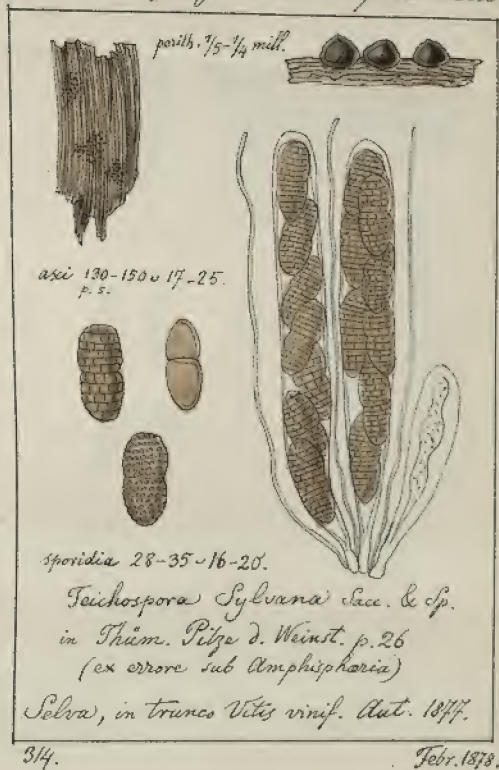 perith. 1/5-1/4 mill.
asci 130-150 ᴗ 17-25.
p. s.
sporidia 28-35 ᴗ 16-20.
Teichospora Sylvana Sacc. & Sp.
in Thüm. Pilze d. Weinst. p. 26
(ex errore sub Amphisphæria)
Selva, in trunco Vitis vinif. Aut. 1877.
314.
Febr. 1878.